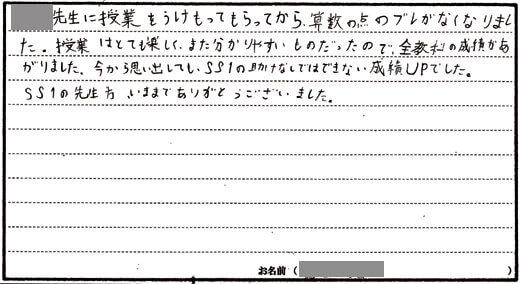 先生に授業をうけもってもらってから、算数の点のブレがなくなりまし
た。授業はとても楽しく、また分かりやすいものだったので、全教科の成績があ
がりました。今から思い出しても、SS1の助けなしではできない成績UPでした。
SS1の先生方いままでありがとうございました。
お名前（